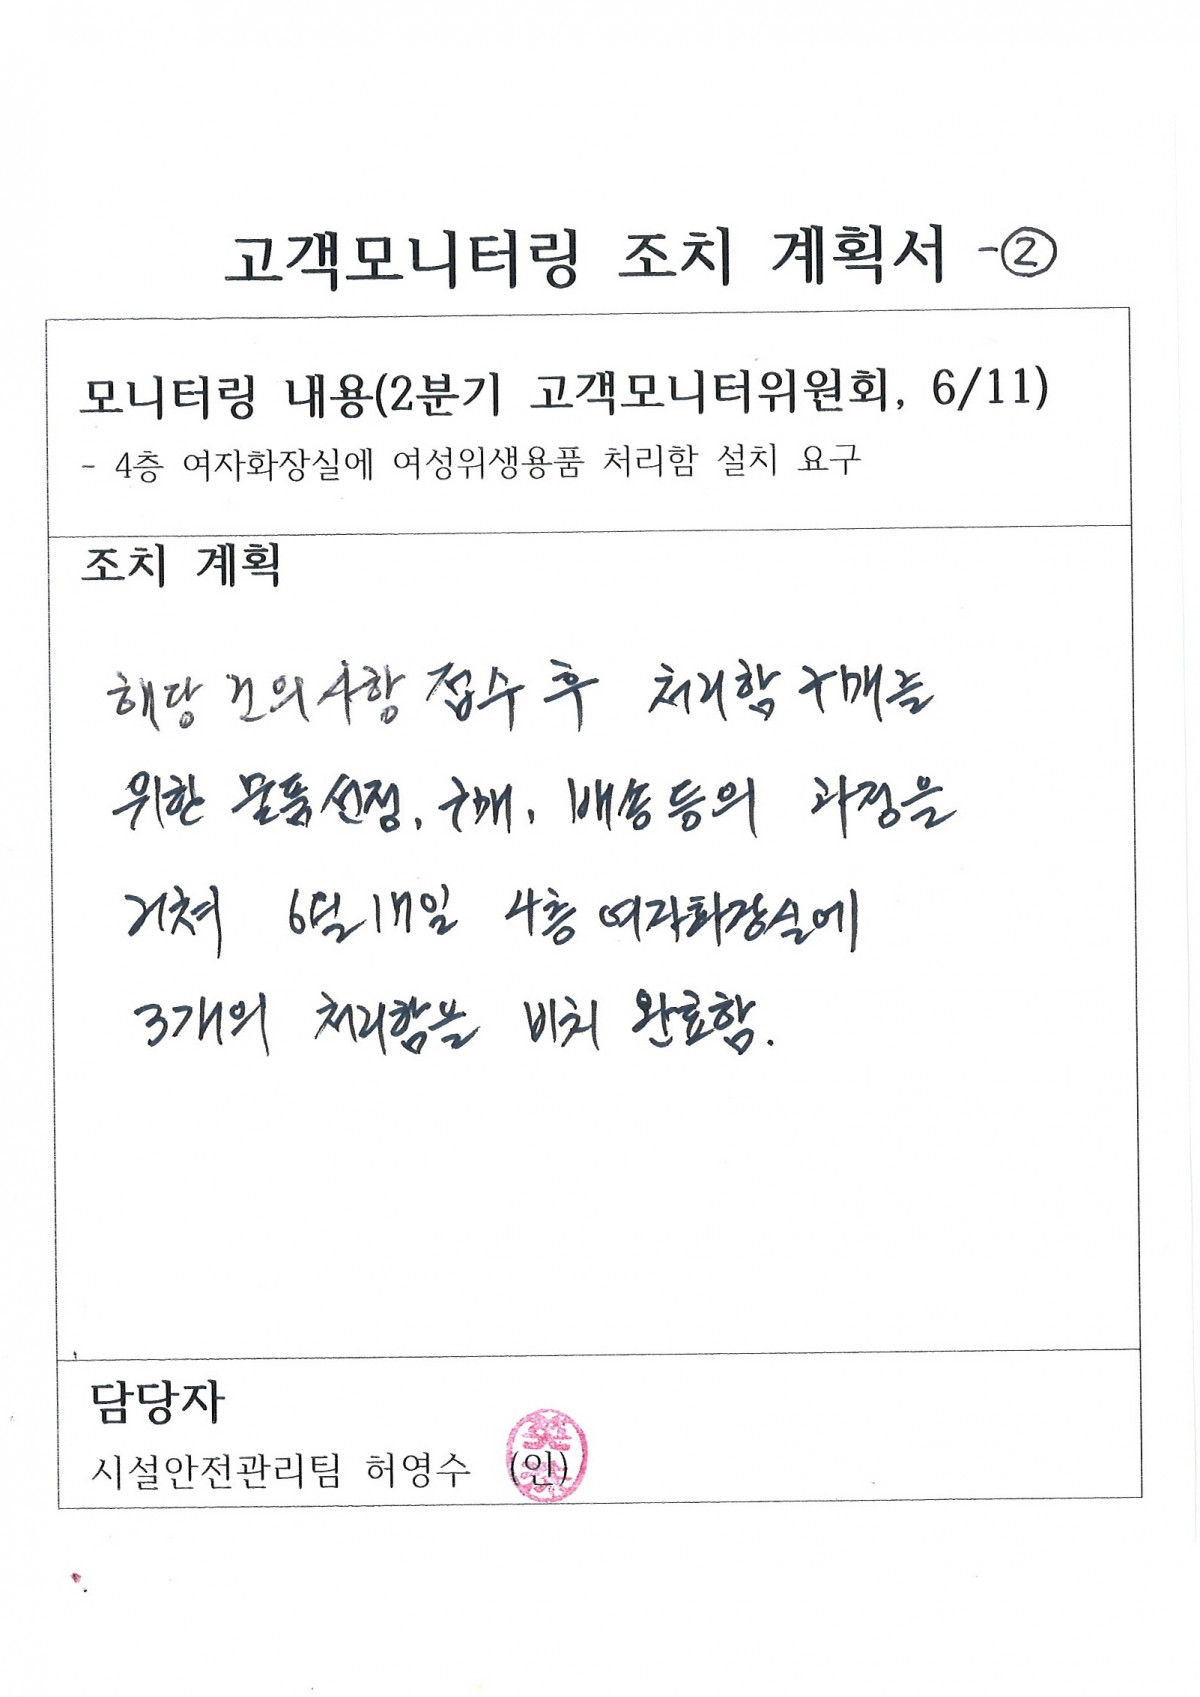 고객모니터링 조치 계획서 -②
모니터링 내용(2분기 고객모니터위원회, 6/11)
- 4층 여자화장실에 여성위생용품 처리함 설치 요구
조치 계획
해당 건의사항 접수 후 처리함 구매를
위한 물품선정, 구매, 배송등의 과정을
거쳐 6월 17일 4층 여자화장실에
3개의 처리함을 비치 완료함.
담당자
시설안전관리팀 허영수 (인)